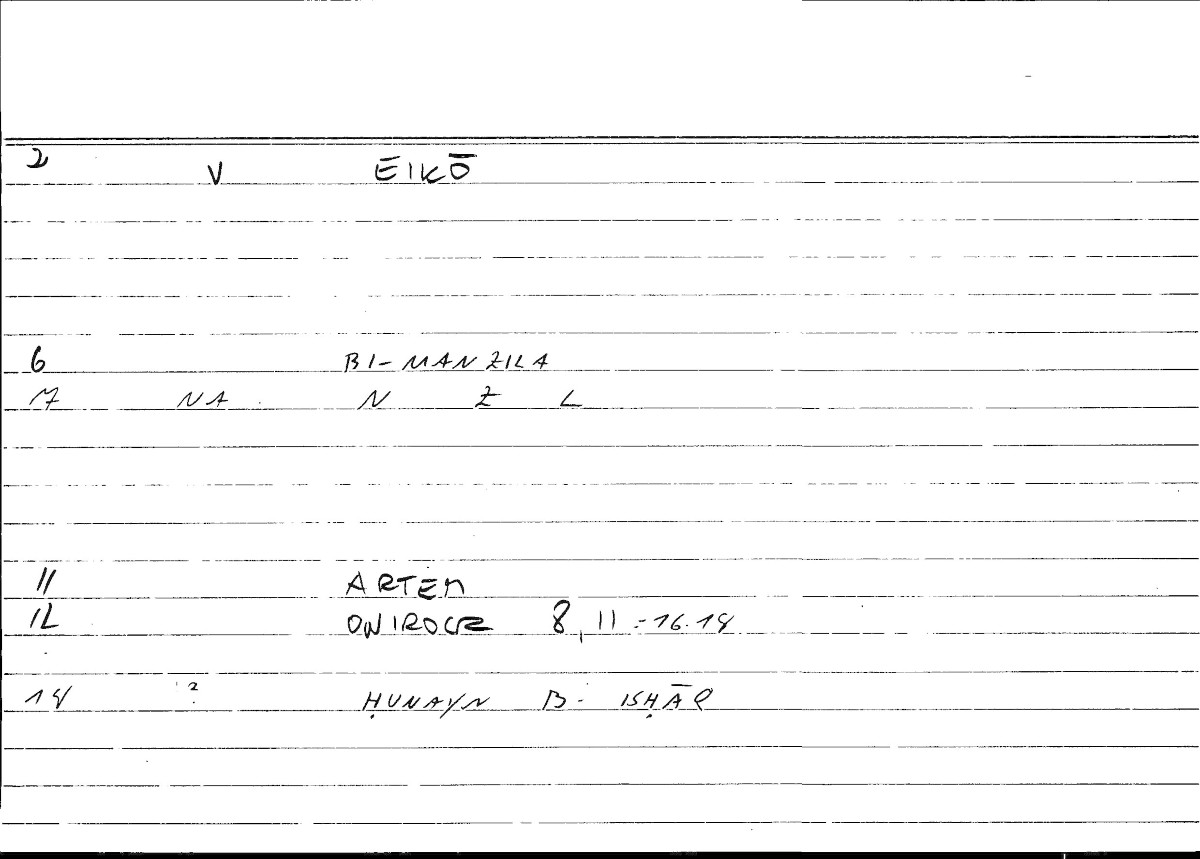 2 V ĒIKŌ
6 BI-MANZILA
7 NA N Z L
11 ARTEM
12 ONIROCR 8, 11-16.18
14 ? ḤUNAYN B. ISḤĀQ